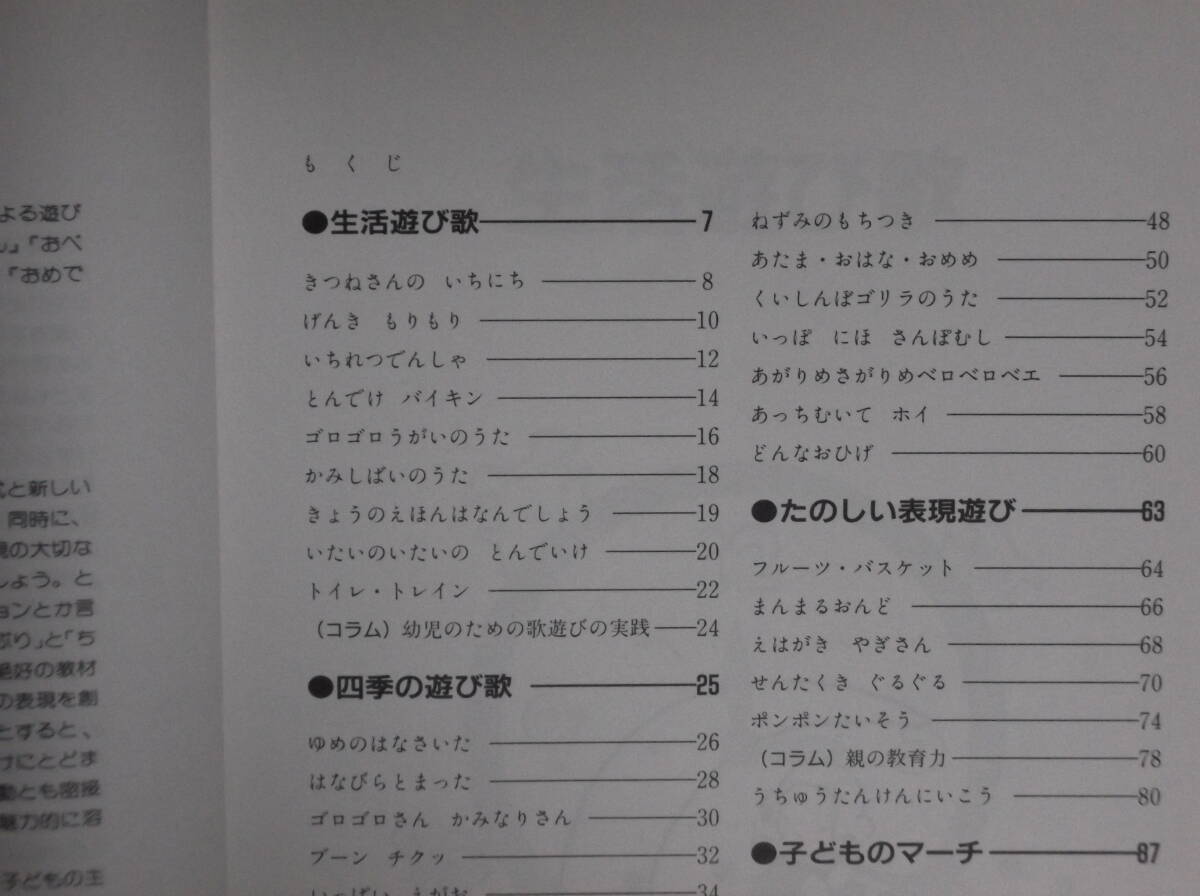 よる遊び
「おべ
「おめで
と新しい
同時に、
の大切な
しょう。と
ョンとか言
ぶり」と「ち
好の教材
の表現を創
とすると、
けにとどま
動とも密接
魅力的に溶
子どもの主
もくじ
●生活遊び歌 7
きつねさんの いちにち 8
げんき もりもり 10
いちれつでんしゃ 12
とんでけ バイキン 14
ゴロゴロうがいのうた 16
かみしばいのうた 18
きょうのえほんはなんでしょう 19
いたいのいたいの とんでいけ 20
トイレ・トレイン 22
(コラム)幼児のための歌遊びの実践 24
●四季の遊び歌 25
ゆめのはなさいた 26
はなびらとまった 28
ゴロゴロさん かみなりさん 30
ブーン チクッ 32
いっぱい えがお 34
ねずみのもちつき 48
あたま・おはな・おめめ 50
くいしんぼゴリラのうた 52
いっぽ にほ さんぽむし 54
あがりめさがりめベロベロベエ 56
あっちむいて ホイ 58
どんなおひげ 60
●たのしい表現遊び 63
フルーツ・バスケット 64
まんまるおんど 66
えはがき やぎさん 68
せんたくき ぐるぐる 70
ポンポンたいそう 74
(コラム)親の教育力 78
うちゅうたんけんにいこう 80
●子どものマーチ 87